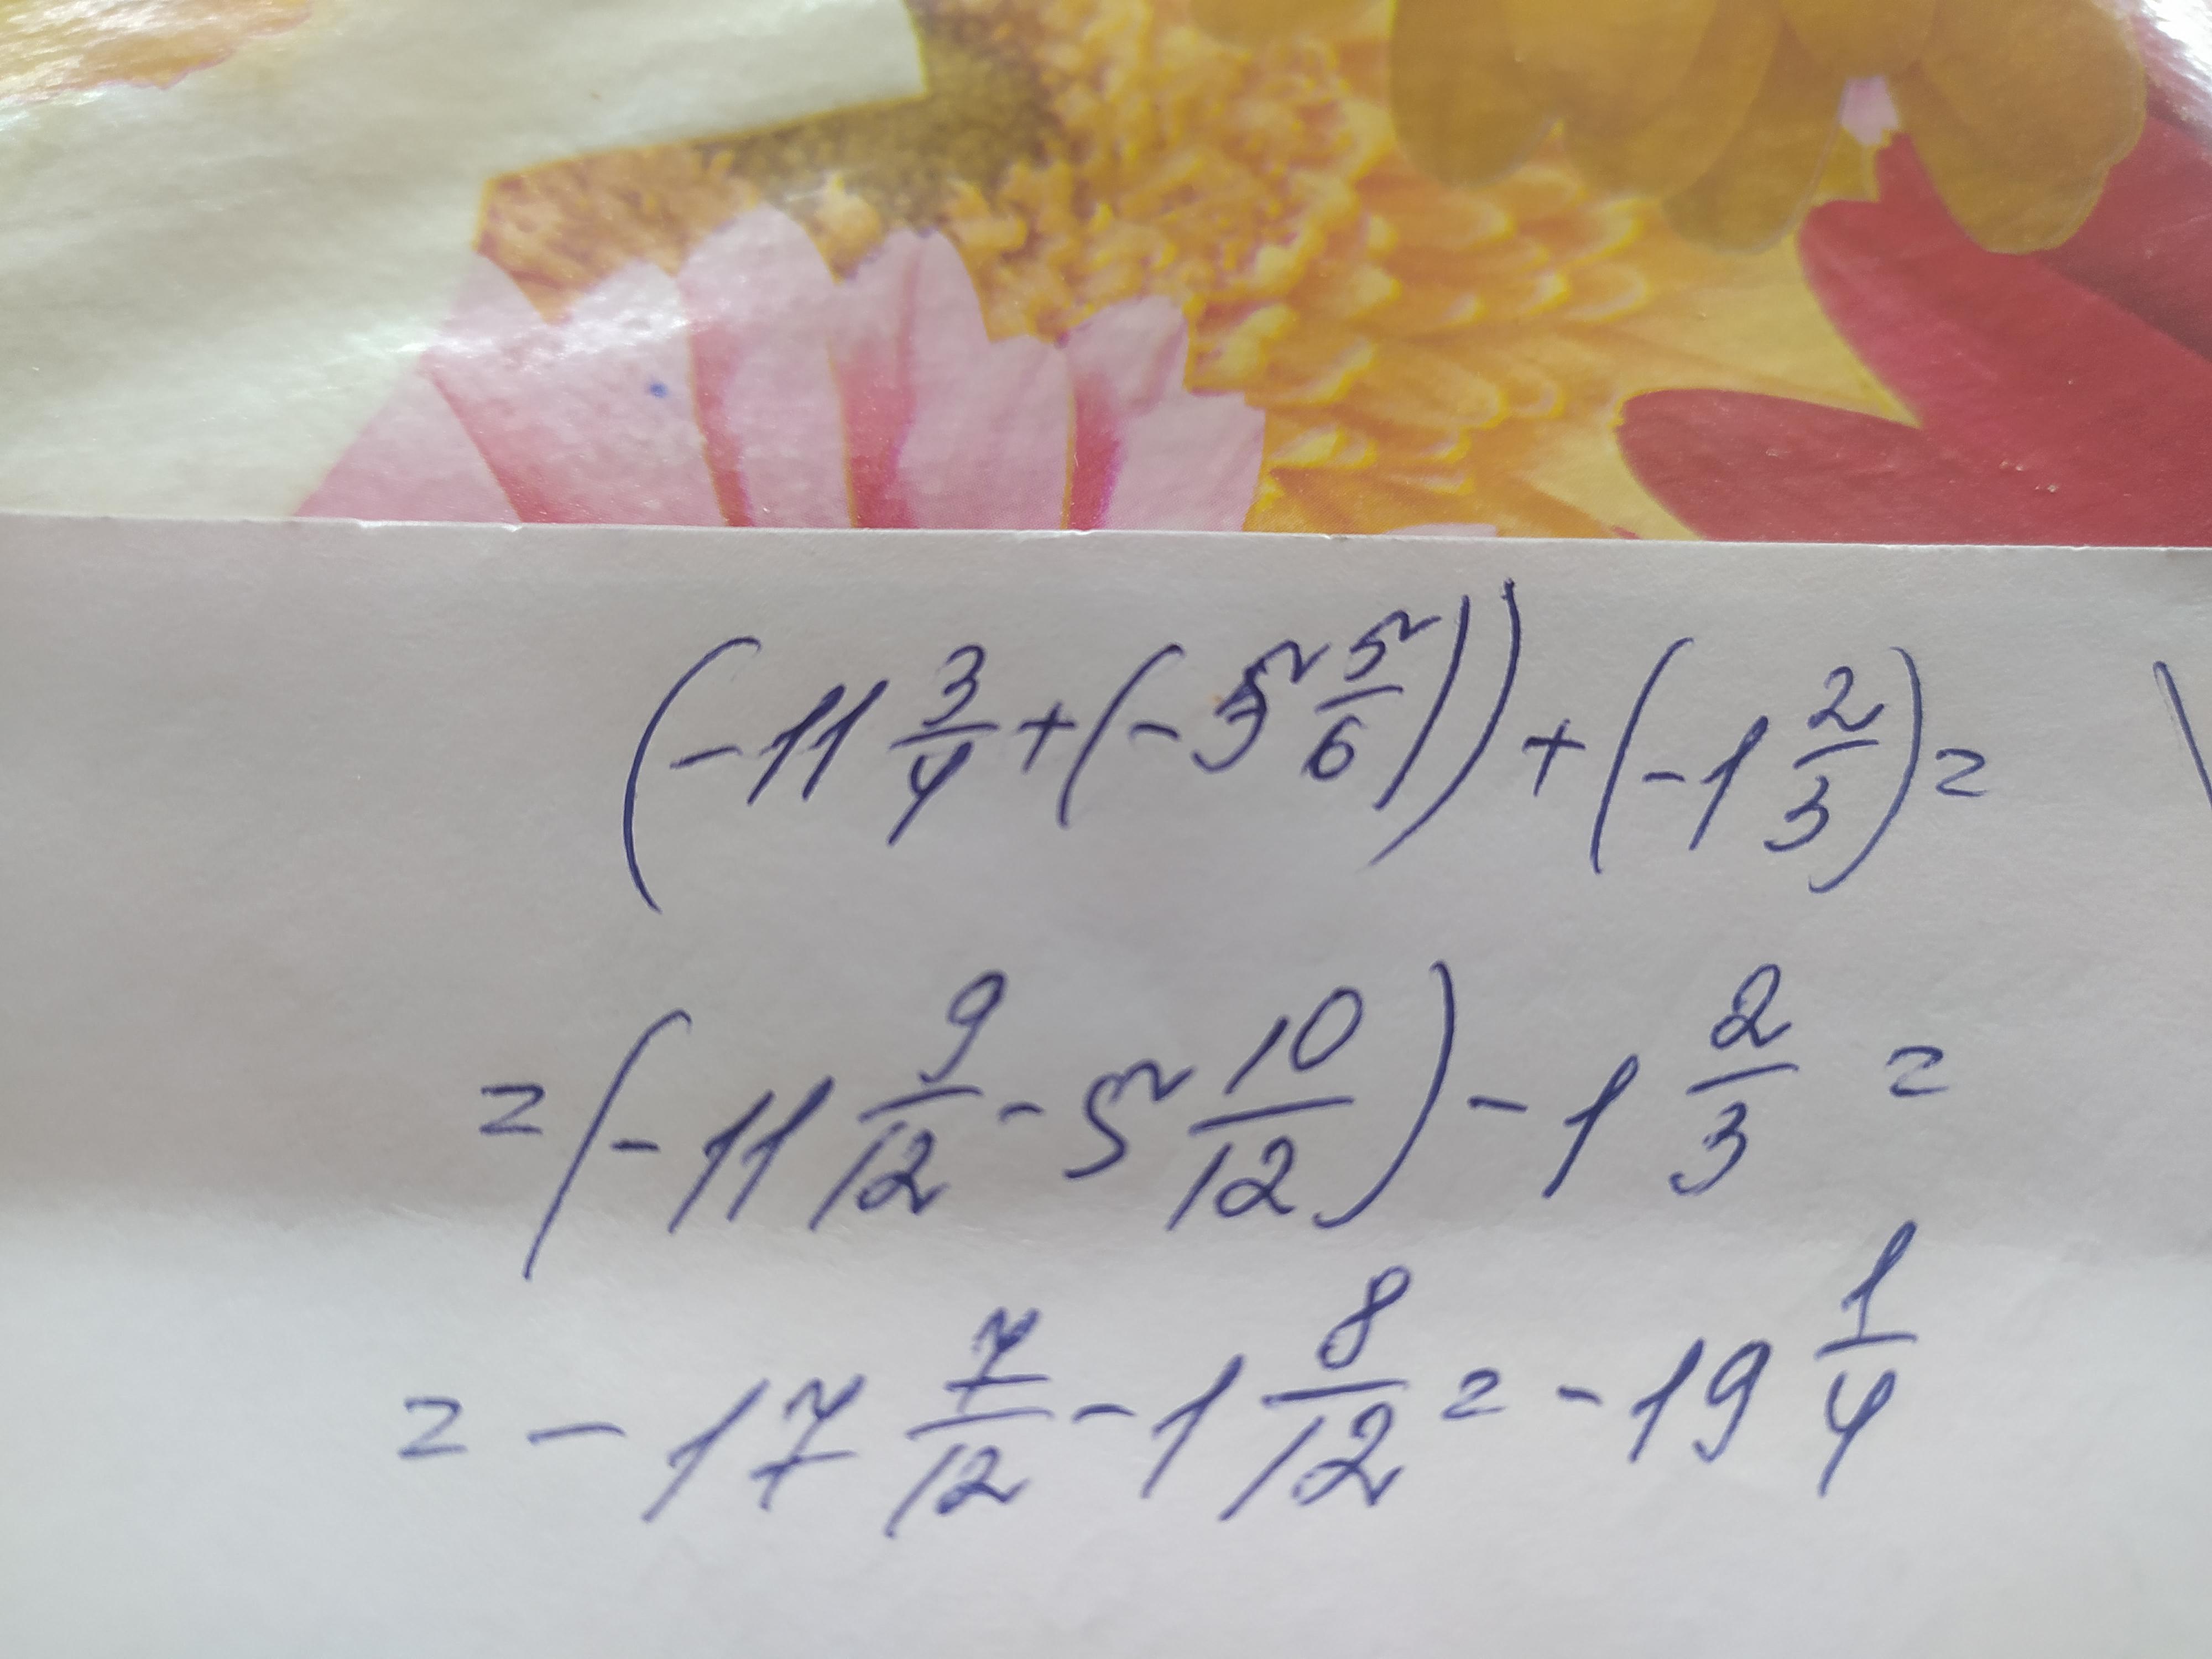 (-11 3/4 + (-5 5/6)) + (-1 2/3) =
= (-11 9/12 - 5 10/12) - 1 2/3 =
= - 17 7/12 - 1 8/12 = - 19 1/4